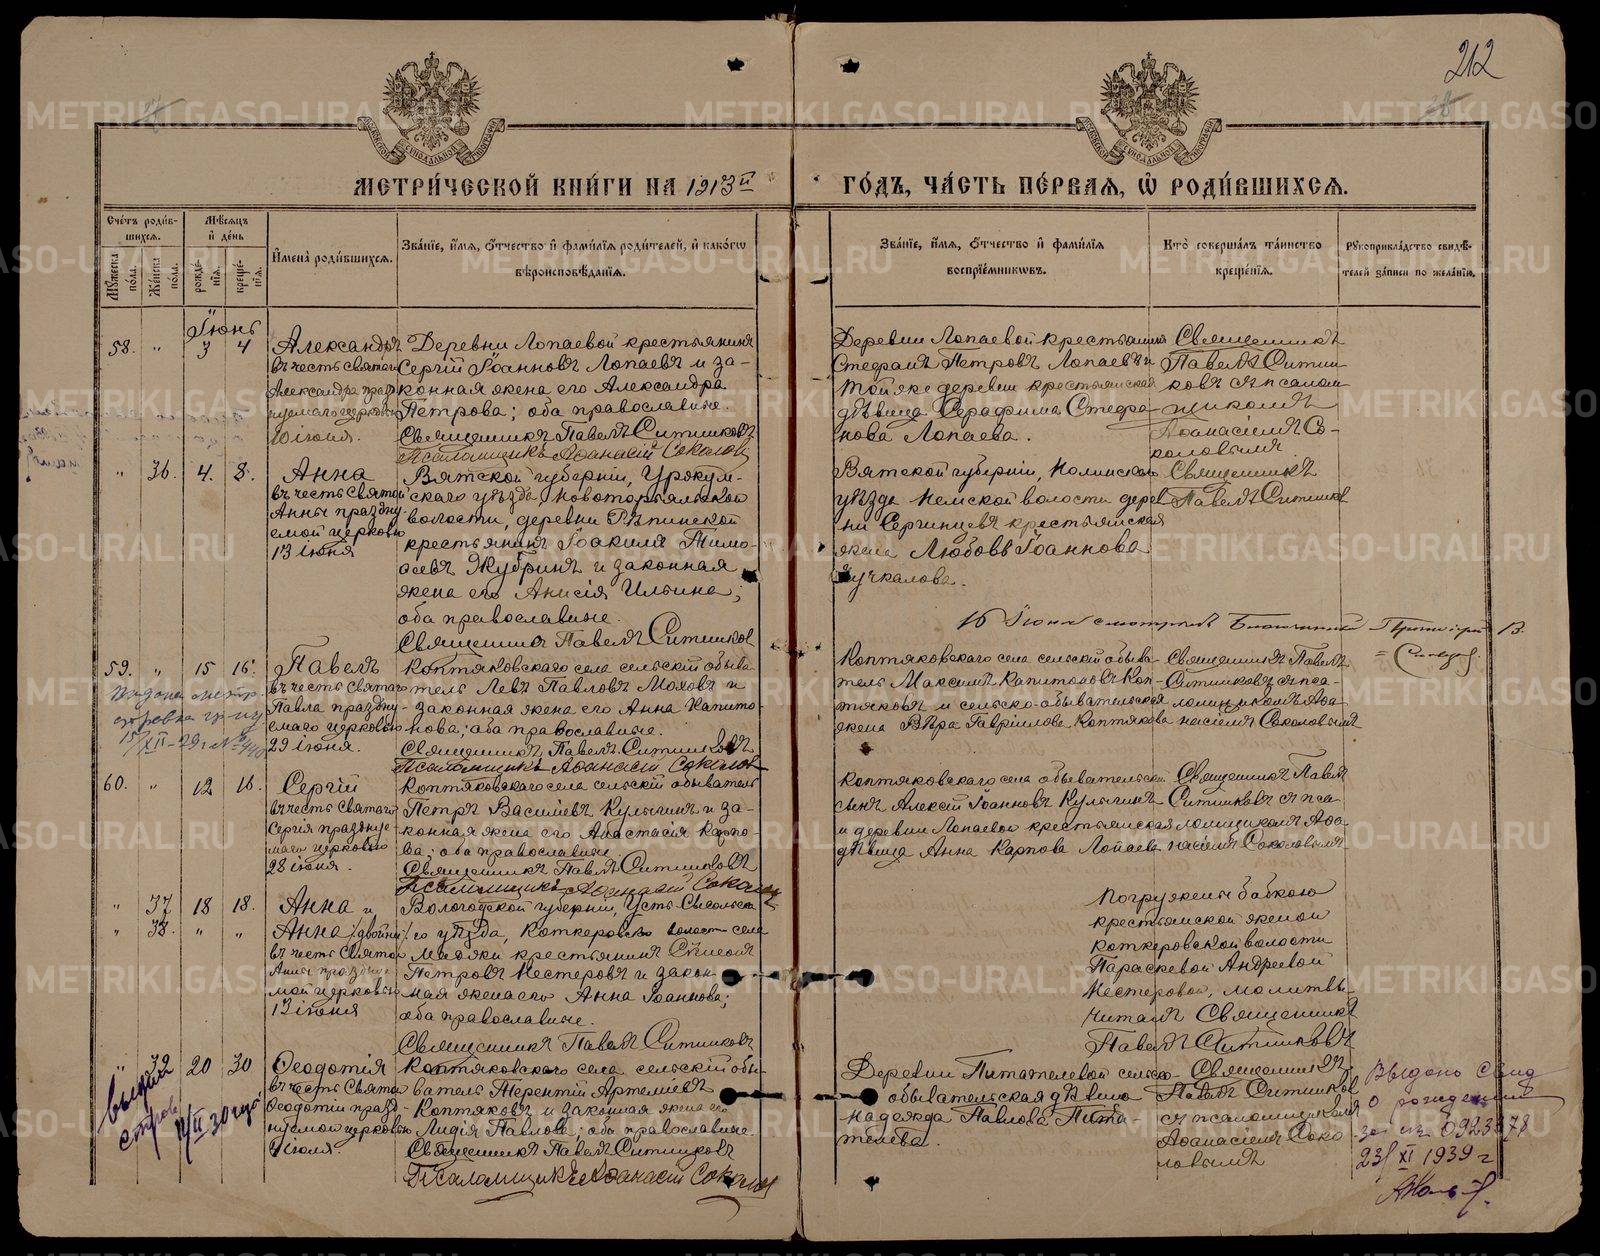 212
МЕТРИ́ЧЕСКОЙ КНИ́ГИ НА 1913й ГО́ДЪ, ЧА́СТЬ ПЕ́РВАЯ, Ѡ РОДИ́ВШИХСЯ.
Сче́тъ роди́вшихся.
Мѣ́сяцъ и де́нь
Му́жеска по́ла.
Же́нска по́ла.
рожде́нїя.
креще́нїя.
Имена̀ роди́вшихся.
Зва́нїе, и́мя, о́тчество и фами́лїя роди́телей, и како́гѡ вѣроисповѣ́данїя.
Зва́нїе, и́мя, о́тчество и фами́лїя воспрїе́мникѡвъ.
Кто̀ соверша́лъ та́инство креще́нїя.
Рукоприкла́дство свидѣ́телей за́писи по жела́нїю.
Іюнь
58. " 3 4
Александръ
въ честь святаго
Александра празд
нуемаго церковью
10 іюня.
Деревни Лопаевой крестьянинъ
Сергій Іоанновъ Лопаевъ и за-
конная жена его Александра
Петрова; оба православные.
Священникъ Павелъ Ситниковъ
Псаломщикъ Аѳанасій Соколовъ
Деревни Лопаевой крестьянинъ
Стефанъ Петровъ Лопаевъ и
той же деревни крестьянская
дѣвица Серафима Стефа
нова Лопаева.
Священникъ
Павелъ Ситни-
ковъ съ псалом-
щикомъ
Аѳанасіемъ Со-
коловымъ
" 36. 4. 8.
Анна
въ честь святой
Анны праздну
емой церковью
13 іюня
Вятской губерніи, Уржум-
скаго уѣзда, Новоторъяльской
волости, деревни Рѣпинской
крестьянинъ Іоакимъ Тимо-
ѳеевъ Жубринъ и законная
жена его Анисія Ильина;
оба православные.
Священникъ Павелъ Ситников
Вятской губерніи, Нолинскаго
уѣзда Немской волости дерев
ни Сергинцевъ крестьянская
жена Любовь Іоаннова
Чучкалова.
Священникъ
Павелъ Ситников
16 Іюня смотрелъ Благочинный
59. " 15 16.
Павелъ
въ честь святаго
Павла праздну-
емаго церковью
29 іюня.
Коптяковскаго села сельскій обыва-
тель Левъ Павловъ Моховъ и
законная жена его Анна Капито-
нова; оба православные.
Священникъ Павелъ Ситниковъ
Псаломщикъ Аѳанасій Соколов
Коптяковскаго села сельскій обыва-
тель Максимъ Капитоновъ Коп-
тяковъ и сельско-обывательская
жена Вѣра Гавріилова Коптякова
Священникъ Павелъ
Ситниковъ съ пса-
ломщикомъ Аѳа-
насіемъ Соколовымъ
60. " 12 16.
Сергій
въ честь святаго
Сергія празднуе-
маго церковью
28 іюня.
Коптяковскаго села сельскій обыватель
Петръ Васильевъ Кулыгинъ и за-
конная жена его Анастасія Карпо-
ва; оба православные
Священникъ Павелъ Ситниковъ
Псаломщикъ Аѳанасій Соколов
Коптяковскаго села обывательскій
сынъ Алексій Іоанновъ Кулыгинъ
и деревни Лопаевой крестьянская
дѣвица Анна Карпова Лопаева
Священникъ Павелъ
Ситниковъ съ пса-
ломщикомъ Аѳа-
насіемъ Соколовымъ
" 37 18 18.
" 38. " "
Анна и
Анна (двойни)
въ честь святой
Анны праздну
мой церковью
13 іюня
Вологодской губерніи, Усть-Сысольска
го уѣзда, Коткеровско волост села
крестьянинъ Сѵмеонъ
Петровъ Нестеровъ и закон-
ная жена его Анна Іоаннова;
оба православные.
Священникъ Павелъ Ситниковъ
Погружены бабкою
крестьянской женой
Коткеровской волости
Параскевой Андреевой
Нестеровой, молитвы
читалъ Священникъ
Павелъ Ситниковъ
" 39 20 30
Ѳеодотія
въ честь святой
Ѳеодотіи празд-
нуемой церковью
іюля.
Коптяковскаго села сельскій обы-
ватель Терентій Артемьевъ
Коптяковъ и законная жена его
Лидія Павлова; оба православные.
Священникъ Павелъ Ситниковъ
Псаломщикъ Аѳанасій Соколов
Деревни Питателевой сельско-
обывательская дѣвица
Надежда Павлова Пита
телева.
Священникъ
Павелъ Ситников
съ псаломщикомъ
Аѳанасіемъ Соко
ловымъ
Выдано Свид
о рождении
за № 0923378
23/XI 1939 г